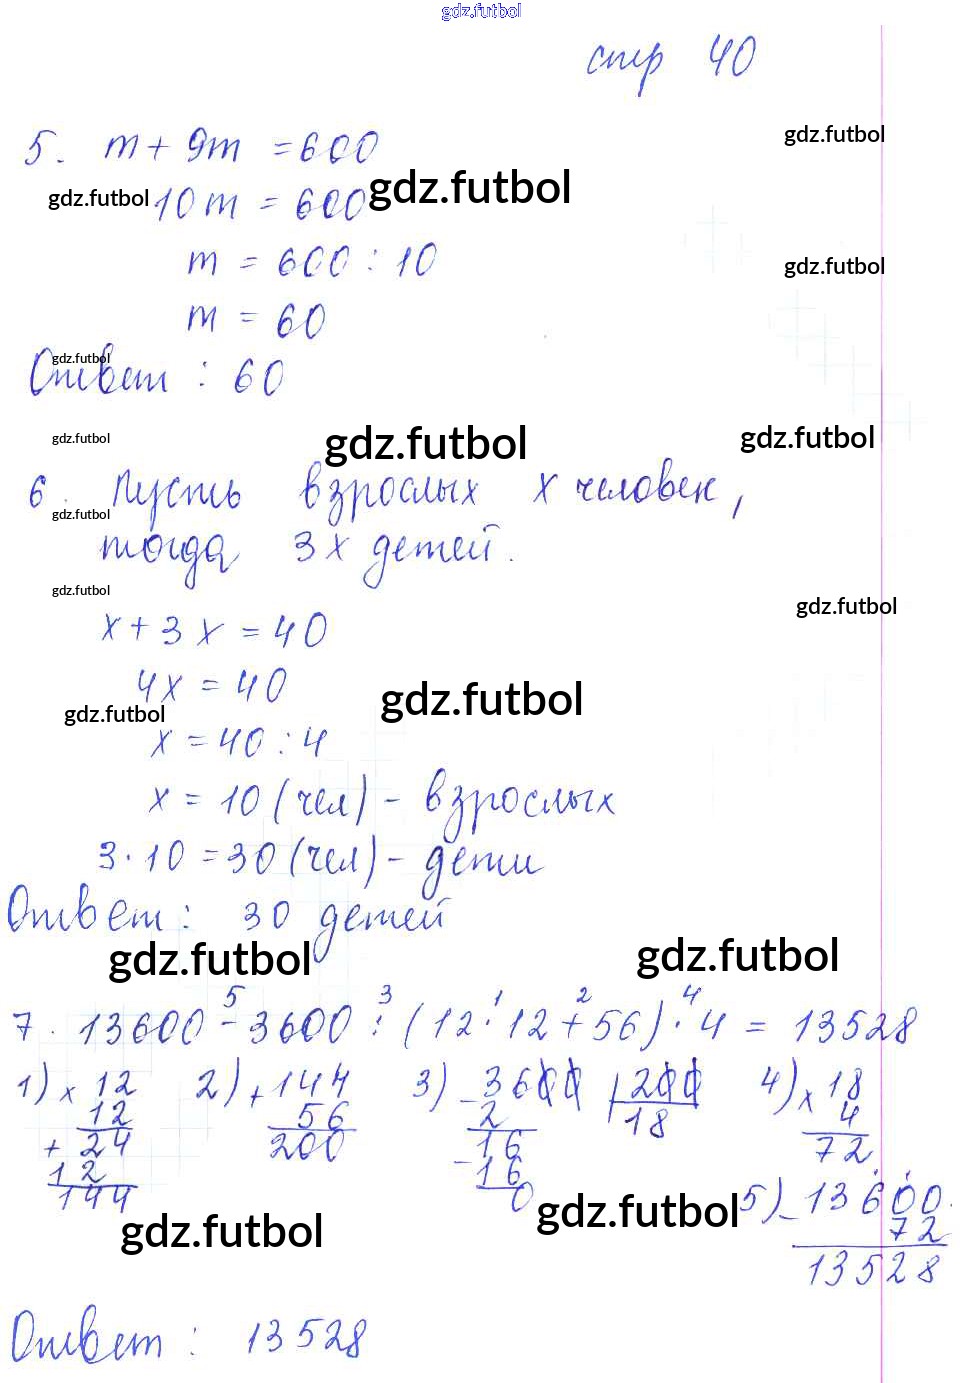 gdz.futbol
стр 40
gdz.futbol
5. m + 9m = 600
gdz.futbol 10m = 600 gdz.futbol
m = 600 : 10
gdz.futbol
m = 60
gdz.futbol
Ответ : 60
gdz.futbol gdz.futbol gdz.futbol
6. Пусть взрослых x человек,
gdz.futbol
тогда 3x детей.
gdz.futbol
gdz.futbol
x + 3x = 40
4x = 40
gdz.futbol gdz.futbol
x = 40 : 4
x = 10 (чел) - взрослых
3 · 10 = 30 (чел) - дети
Ответ : 30 детей
gdz.futbol gdz.futbol
5 3 1 2 4
7. 13600 - 3600 : (12 · 12 + 56) · 4 = 13528
1) x 12 2) + 144 3) - 3600 | 200 4) x 18
12 56 2 18 4
+ 24 200 16 72
12 - 16
144 0
5) - 13600
72
13528
gdz.futbol gdz.futbol
Ответ : 13528